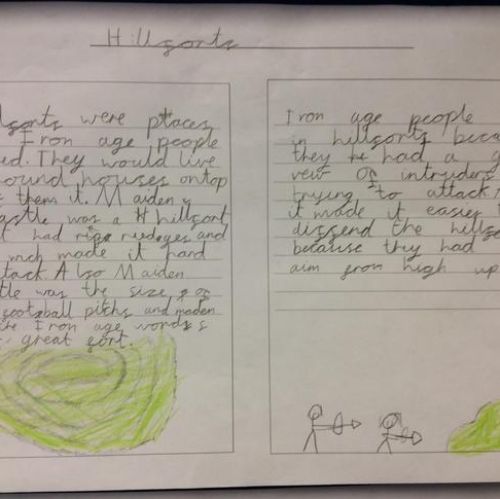 Hillforts
were places
Iron age people
They would live
round houses ontop
them it. Maiden
castle was a hillfort
had rudeges and
made it hard
attack Also Maiden
was the size of
football pitchs and maden
Iron age words
great fort.
Iron age people
in hillforts
they had a
vew of intruders
trying to attack
it made it easier
dissend the
because they had
aim from high up